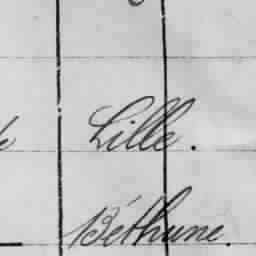 Lille.
Béthune.